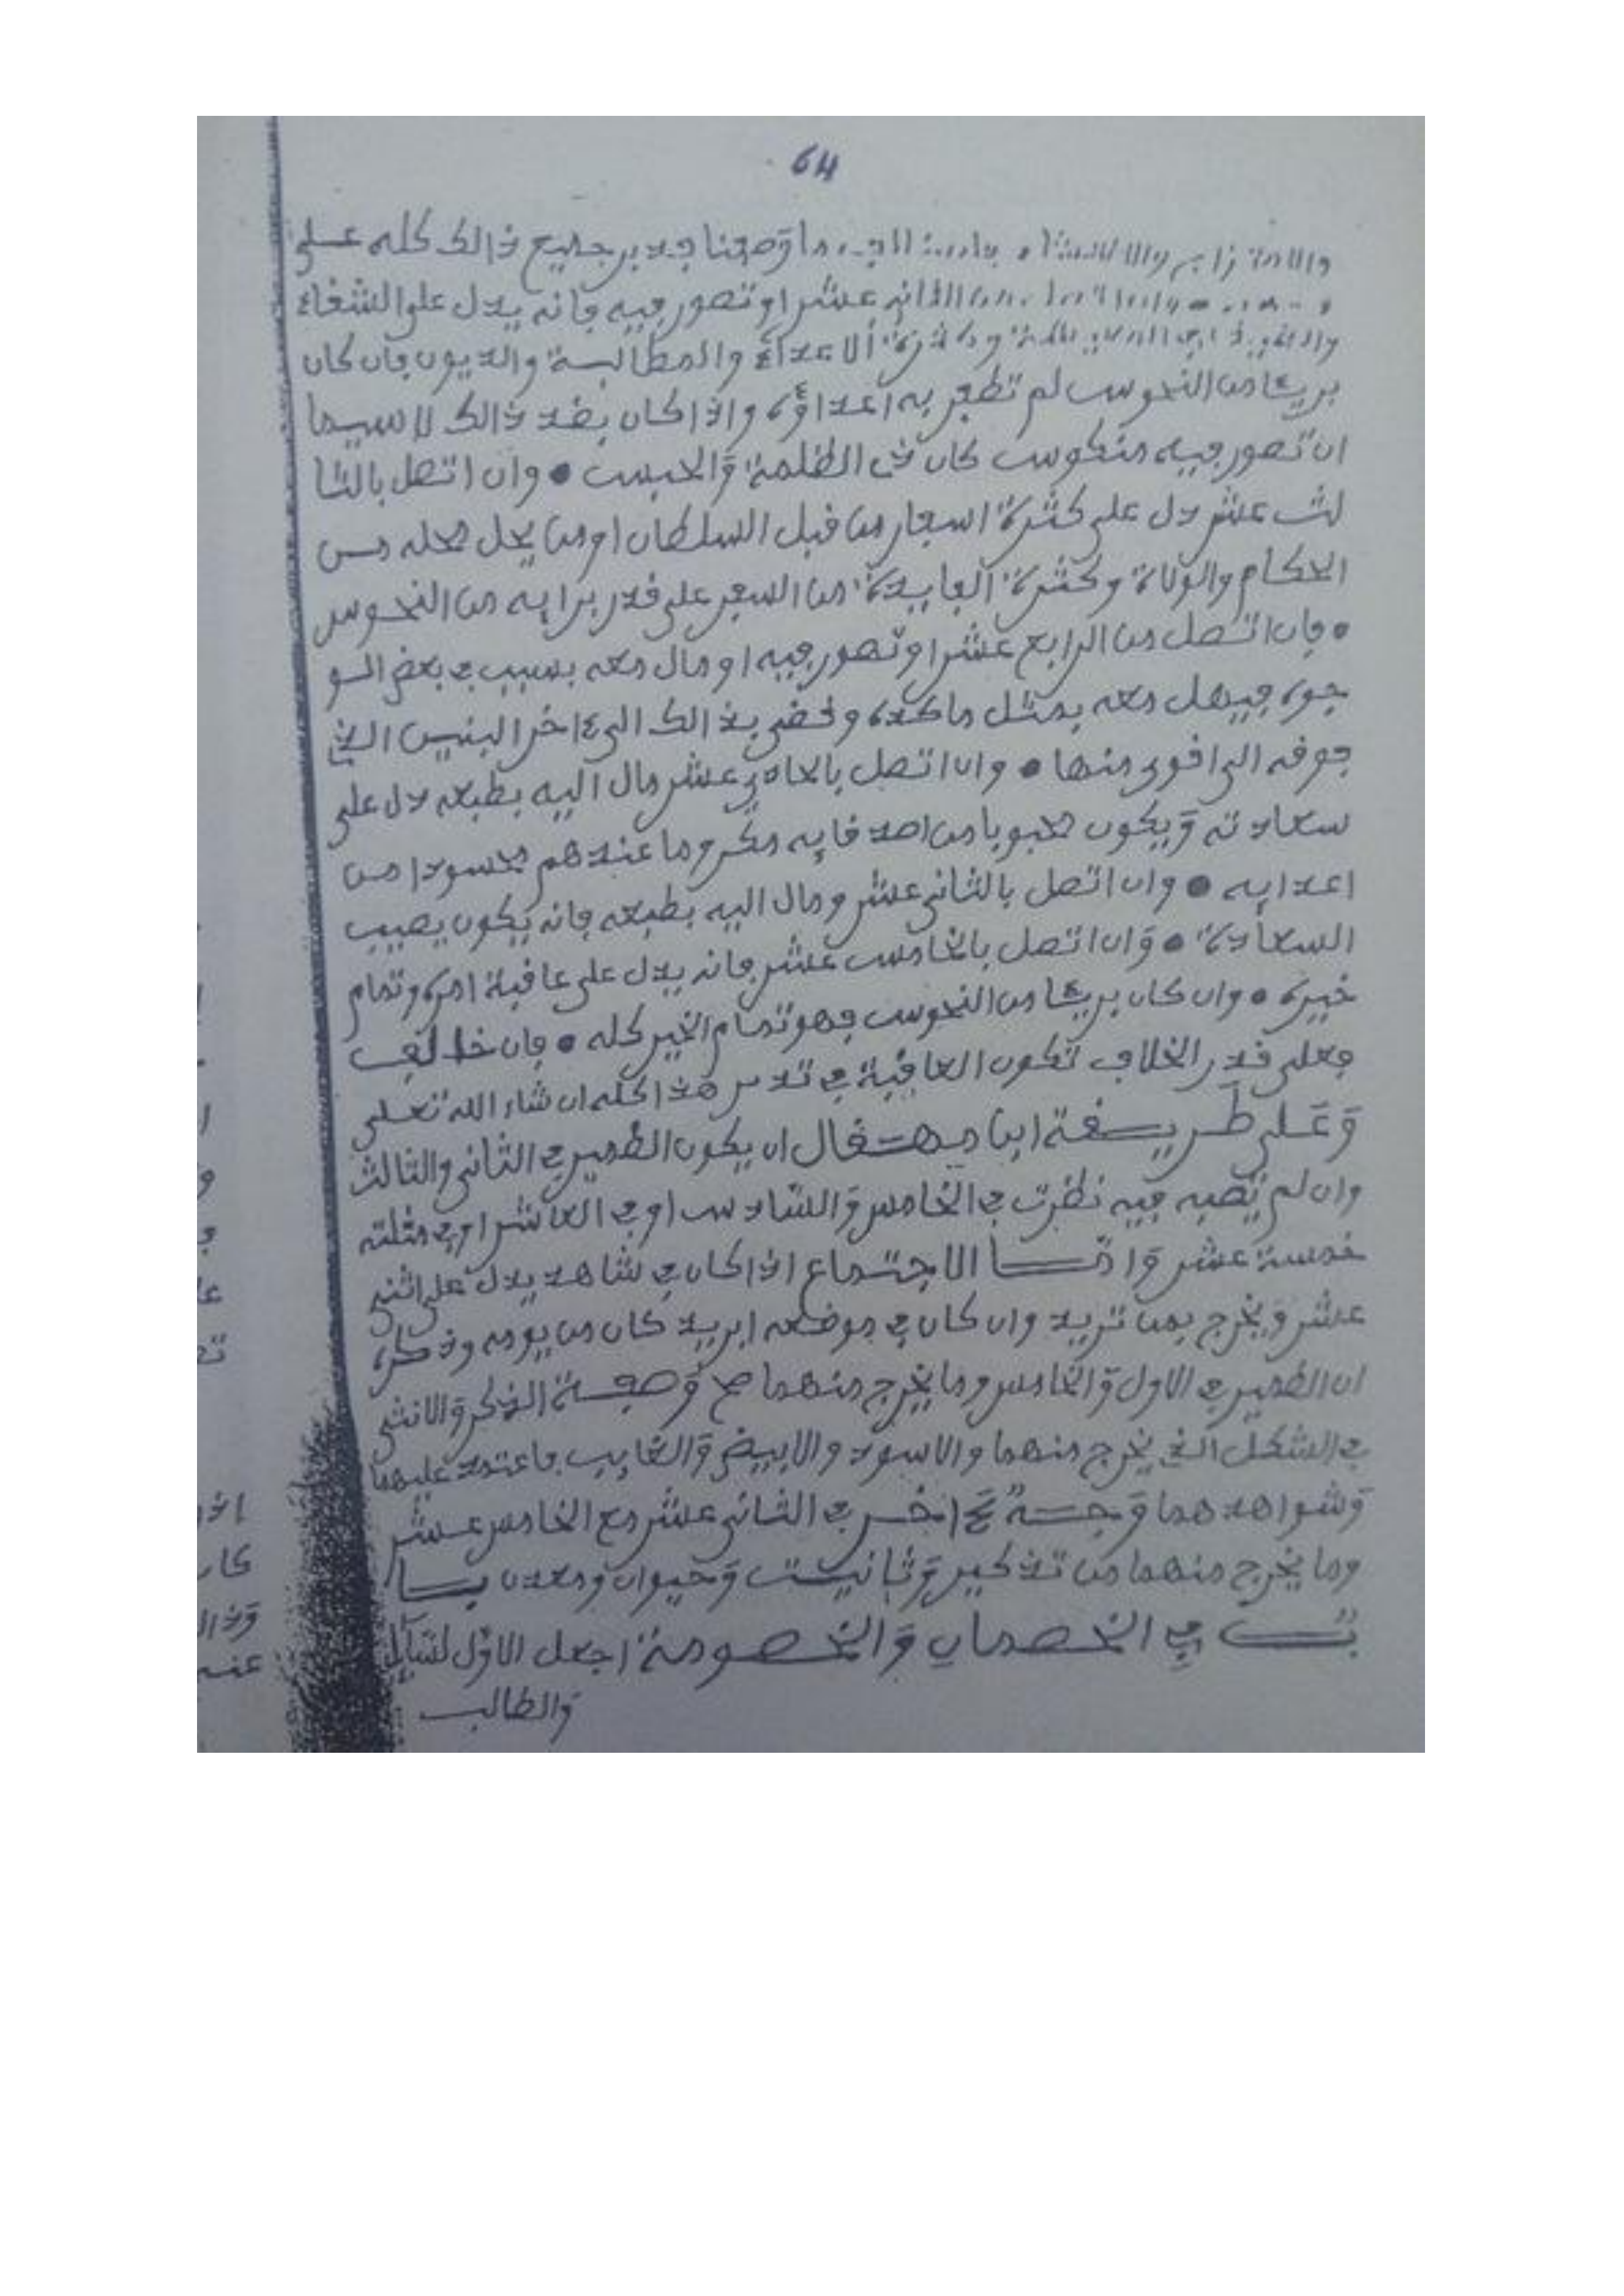 64
ما وصفنا فدبر جميع ذالك كله على
عشر او تصور فيه فانه يدل على الشفاء
وكثرة الاعداء والمطالبة والديون فان كان
بريئا من النحوس لم تظفر به اعداؤه واذا كان بضد ذالك لاسيما
ان تصور فيه منكوس كان في الظلمة والحبس • وان اتصل بالثا
لث عشر دل على كثرة اسفار من قبل السلطان او من يحل محله من
الحكام والولاة وكثرة الفايدة من السفر على قدر برايه من النحوس
• فان اتصل من الرابع عشر او تصور فيه او مال معه بسبب في بعض الو
جوه فيهل معه بمثل ماكده وقضى بذالك الى ءاخر البنيين الذي
فوقه الى اقوى منها • وان اتصل بالحادي عشر مال اليه بطبعه دل على
سعادته ويكون محبوبا من اصدقايه مكروما عندهم محسودا من
اعدايه • وان اتصل بالثاني عشر ومال اليه بطبعه فانه يكون يصيب
السعادة • وان اتصل بالخامس عشر فانه يدل على عاقبة امره وتمام
خيره • وان كان بريئا من النحوس فهو تمام الخير كله • فان خالف
فعلى قدر الخلاف تكون العاقبة في تدبر هذا كله ان شاء الله تعلى
وعلى طريقة ابن ميهقال ان يكون الضمير في الثاني والثالث
وان لم تصبه فيه نظرت في الخامس والسادس او في العاشر او في مثلثه
خمسة عشر واما الاجتماع اذا كان في شاهد يدل على اثني
عشر ويخرج بمن تريد وان كان في موضعه ابريد كان من يومه وذكره
ان الضمير في الاول والخامس وما يخرج منهما صح وصفة الذكر والانثى
في الشكل الذي يخرج منهما والاسود والابيض والغايب فاعتمد عليهما
وشواهدهما وجه ءاخر في الثاني عشر مع الخامس عشر
وما يخرج منهما من تذكير وتانيث وحيوان ومعدن با
ب في الخصمان والخصومة اجعل الاول لسايل
والطالب